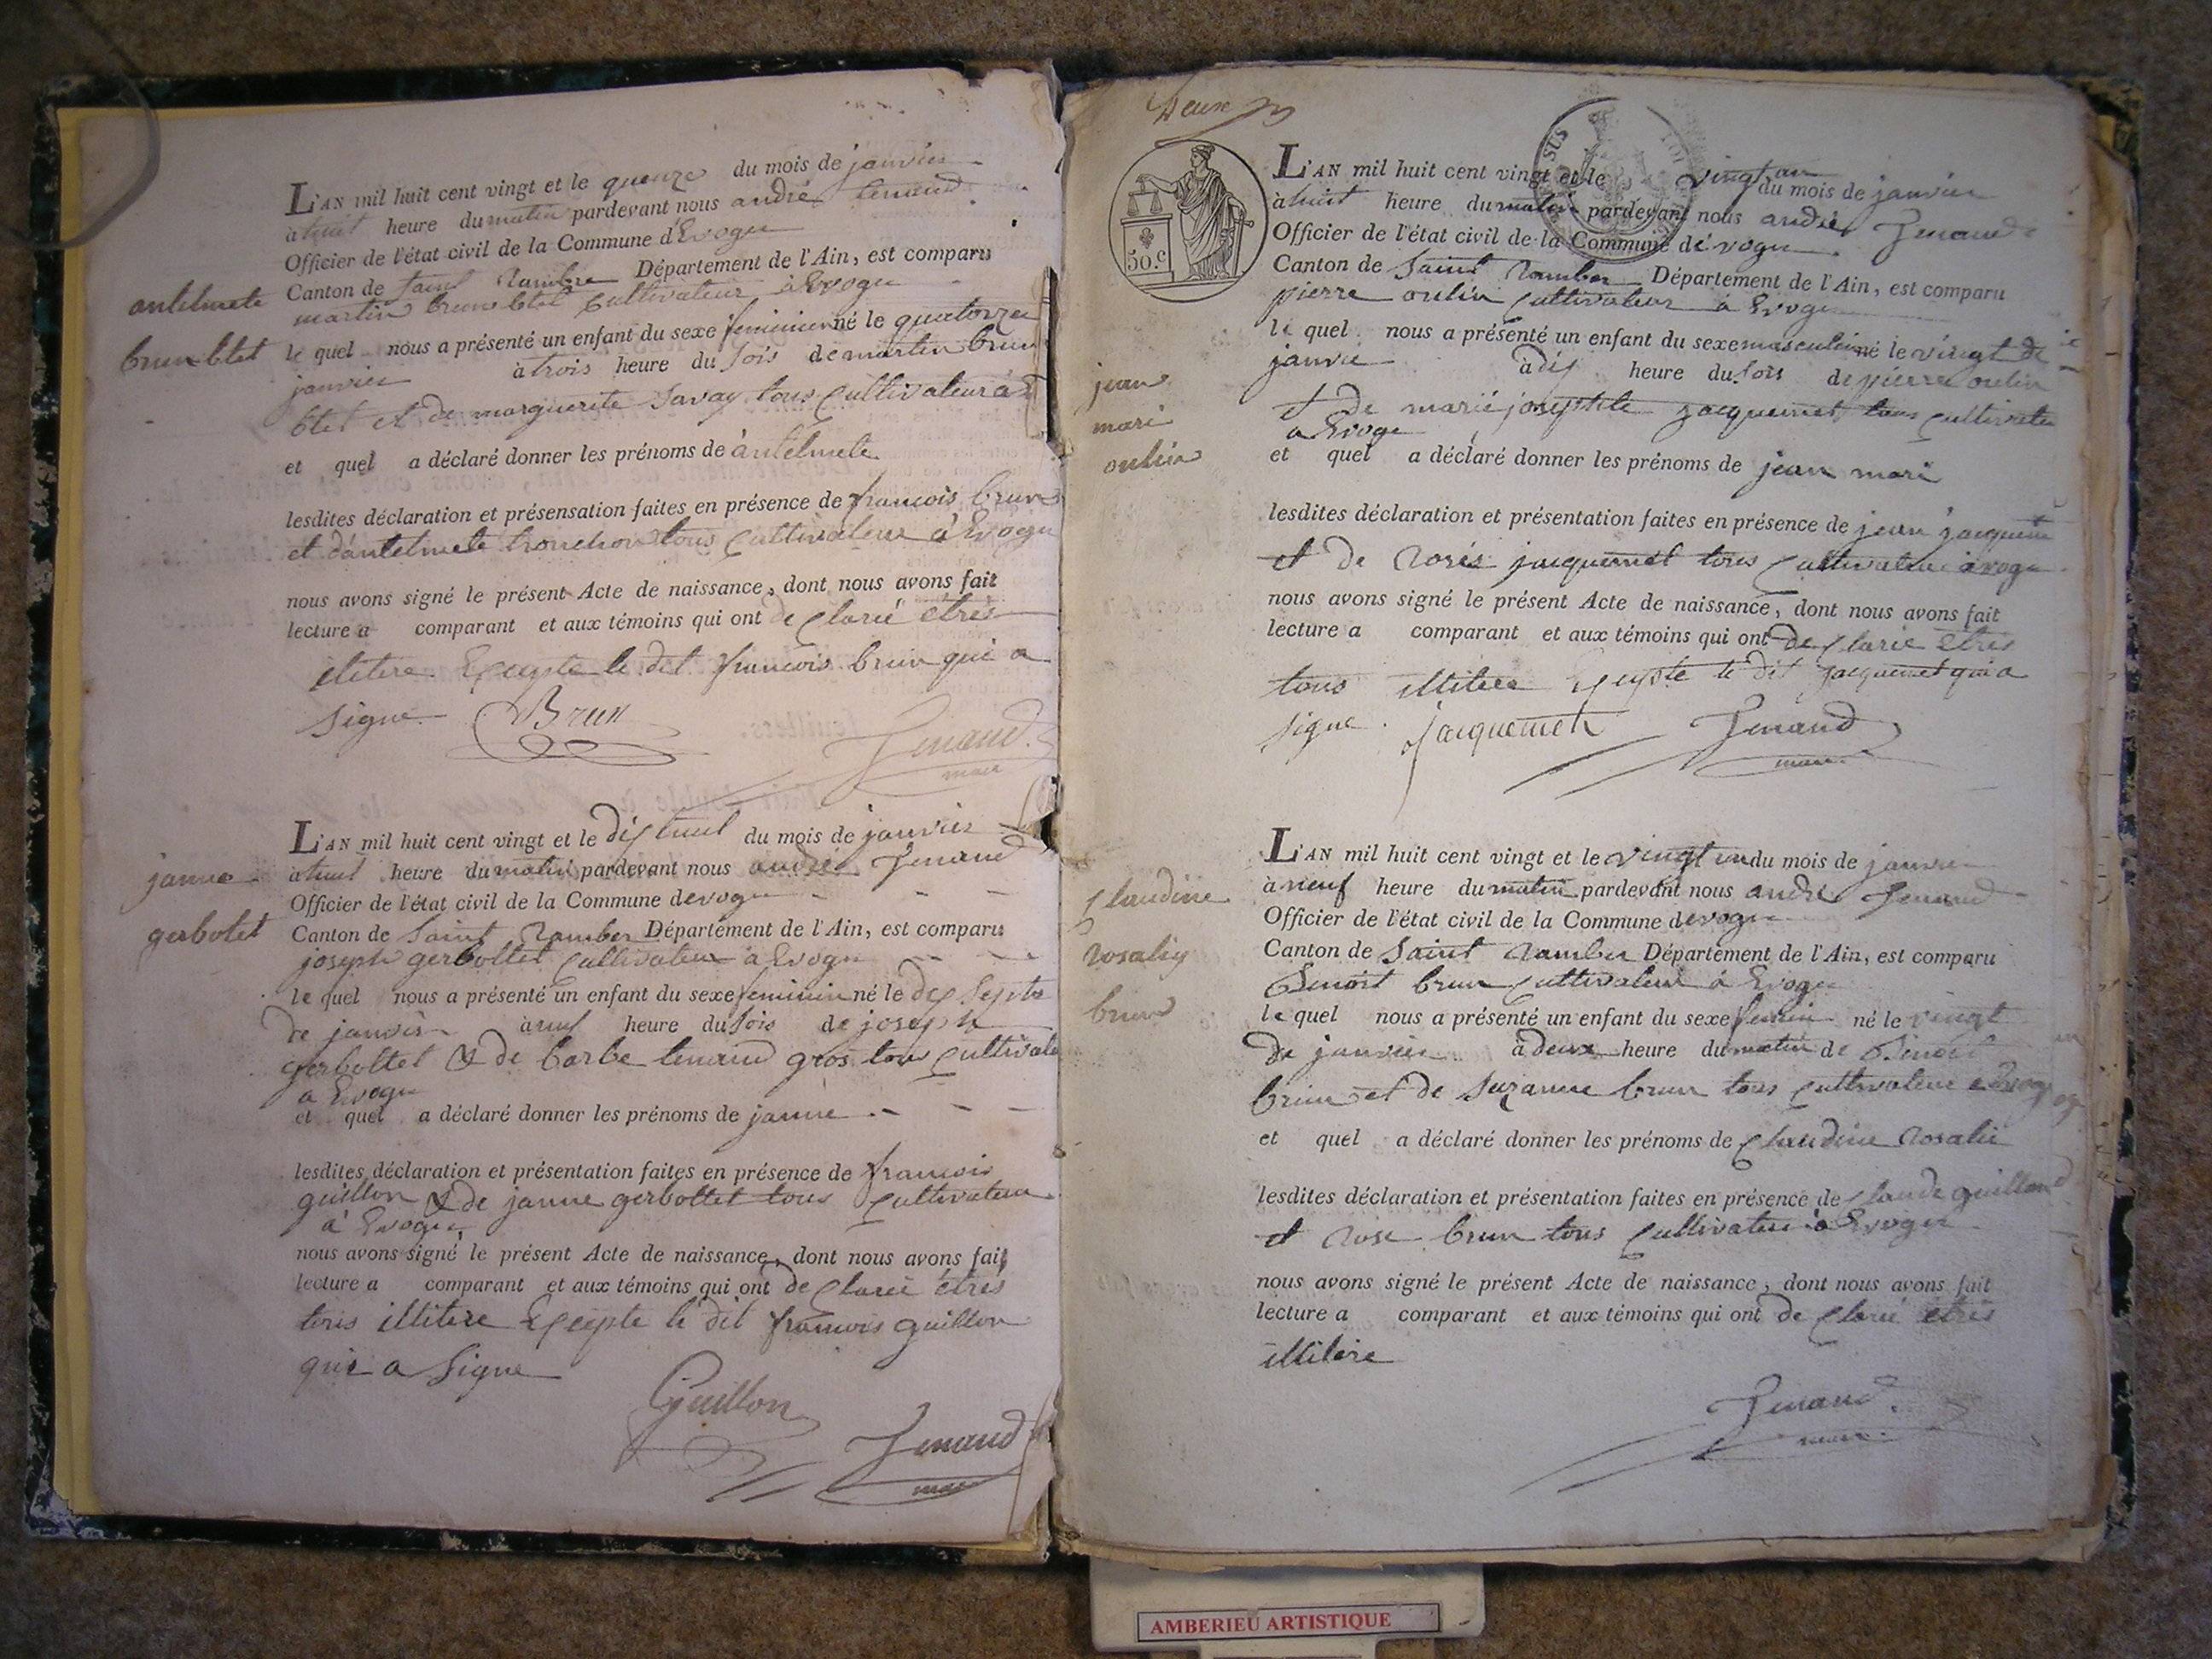 antelmete
brun btet
L'AN mil huit cent vingt et le quenze du mois de janvier
à huit heure du matin pardevant nous andré tenand
Officier de l'état civil de la Commune d'Evoges
Canton de saint Rambre Département de l'Ain, est comparu
martin brun btet cultivateur à Evoge
le quel nous a présenté un enfant du sexe feminin né le quatorze
janvier à trois heure du soir de martin brun
btet et de marguerite savay tous cultivateur à
et quel a déclaré donner les prénoms de antelmete
lesdites déclaration et présensation faites en présence de francois brun
et d'antelmete tronchon tous cultivateur à Evoge
nous avons signé le présent Acte de naissance, dont nous avons fait
lecture a comparant et aux témoins qui ont de claré etres
eletere Excepte le dit francois brun qui a
signe Brun Tenand
maire
janne
gerbotet
L'AN mil huit cent vingt et le dix huit du mois de janvier
a huit heure du matin pardevant nous andré Tenand
Officier de l'état civil de la Commune devoge
Canton de Saint Ramber Département de l'Ain, est comparu
joseph gerbottet cultivateur à Evoge
le quel nous a présenté un enfant du sexe feminin né le dix septe
de janvier à neuf heure du soir de joseph
gerbottet & de barbe tenand gros tous cultivate
a Evoge
et quel a déclaré donner les prénoms de janne
lesdites déclaration et présentation faites en présence de francois
guillon & de janne gerbottet tous cultivateur
à Evoge
nous avons signé le présent Acte de naissance, dont nous avons fait
lecture a comparant et aux témoins qui ont de claré etres
tous illitere Excepte le dit francois guillon
qui a signe
Guillon
Tenand
maire
Deux
50.c
SUS
ROI
L'AN mil huit cent vingt et le vingt un du mois de janvier
à huit heure du matin pardevant nous andré Tenand
Officier de l'état civil de la Commune dévoge
Canton de Saint Ramber Département de l'Ain, est comparu
pierre oulin cultivateur à Evoge
le quel nous a présenté un enfant du sexe masculin né le vingt de
janvie à dix heure du soir de pierre oulin
et de marie josephte jacquemet tous cultivateu
a Evoge
jean
mari
oulin
et quel a déclaré donner les prénoms de jean mari
lesdites déclaration et présentation faites en présence de jean jacquemet
et de Rosés jacquemet tous cultivateur à voge
nous avons signé le présent Acte de naissance, dont nous avons fait
lecture a comparant et aux témoins qui ont de clare etres
tous illitere excepte le dit jacquemet qui a
signe Jacquemet Tenand
maire
claudine
rosaliy
brun
L'AN mil huit cent vingt et le vingt un du mois de janvier
à neuf heure du matin pardevant nous andré Tenand
Officier de l'état civil de la Commune devoge
Canton de Saint Ramber Département de l'Ain, est comparu
Benoit brun cultivateur à Evoge
le quel nous a présenté un enfant du sexe femin né le vingt
de janvier à deux heure du matin de Benoit
brun et de Suzanne brun tous cultivateur a Evoge
et quel a déclaré donner les prénoms de claudine Rosalie
lesdites déclaration et présentation faites en présence de claude guilland
et Rose brun tous cultivateur à Evoge
nous avons signé le présent Acte de naissance, dont nous avons fait
lecture a comparant et aux témoins qui ont de claré etres
illitère
Tenand
maire
AMBERIEU ARTISTIQUE